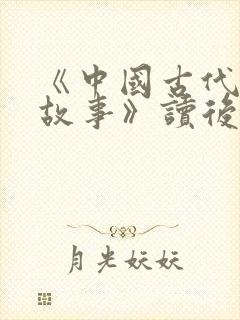 《中國古代
故事》讀後
月光妖妖